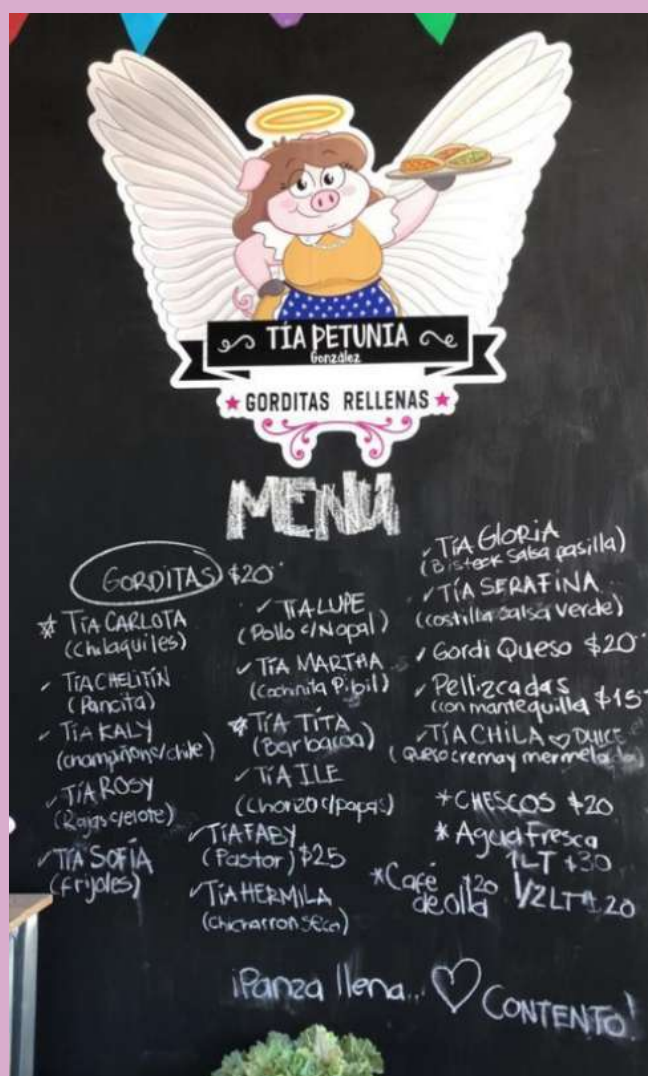 TÍA PETUNIA
González
GORDITAS RELLENAS
MENÚ
GORDITAS $20
TÍA CARLOTA
(Chilaquiles)
TÍA CHELITÍN
(Pancita)
TÍA KALY
(champiñones/chile)
TÍA ROSY
(Rajas c/elote)
TÍA SOFÍA
(frijoles)
TÍA LUPE
(Pollo c/Nopal)
TÍA MARTHA
(Cochinita Pibil)
TÍA TITA
(Barbacoa)
TÍA ILE
(Chorizo c/papas)
TÍA FABY
(Pastor) $25
TÍA HERMILA
(chicharron seco)
TÍA GLORIA
(Bisteck salsa pasilla)
TÍA SERAFINA
(costilla salsa verde)
Gordi Queso $20
Pellizcadas
(con mantequilla $15
TÍA CHILA DULCE
(queso crema y mermelada)
*CHESCOS $20
*Agua Fresca
1LT $30
1/2 LT $20
*Café $20
de olla
¡Panza llena... CONTENTO!